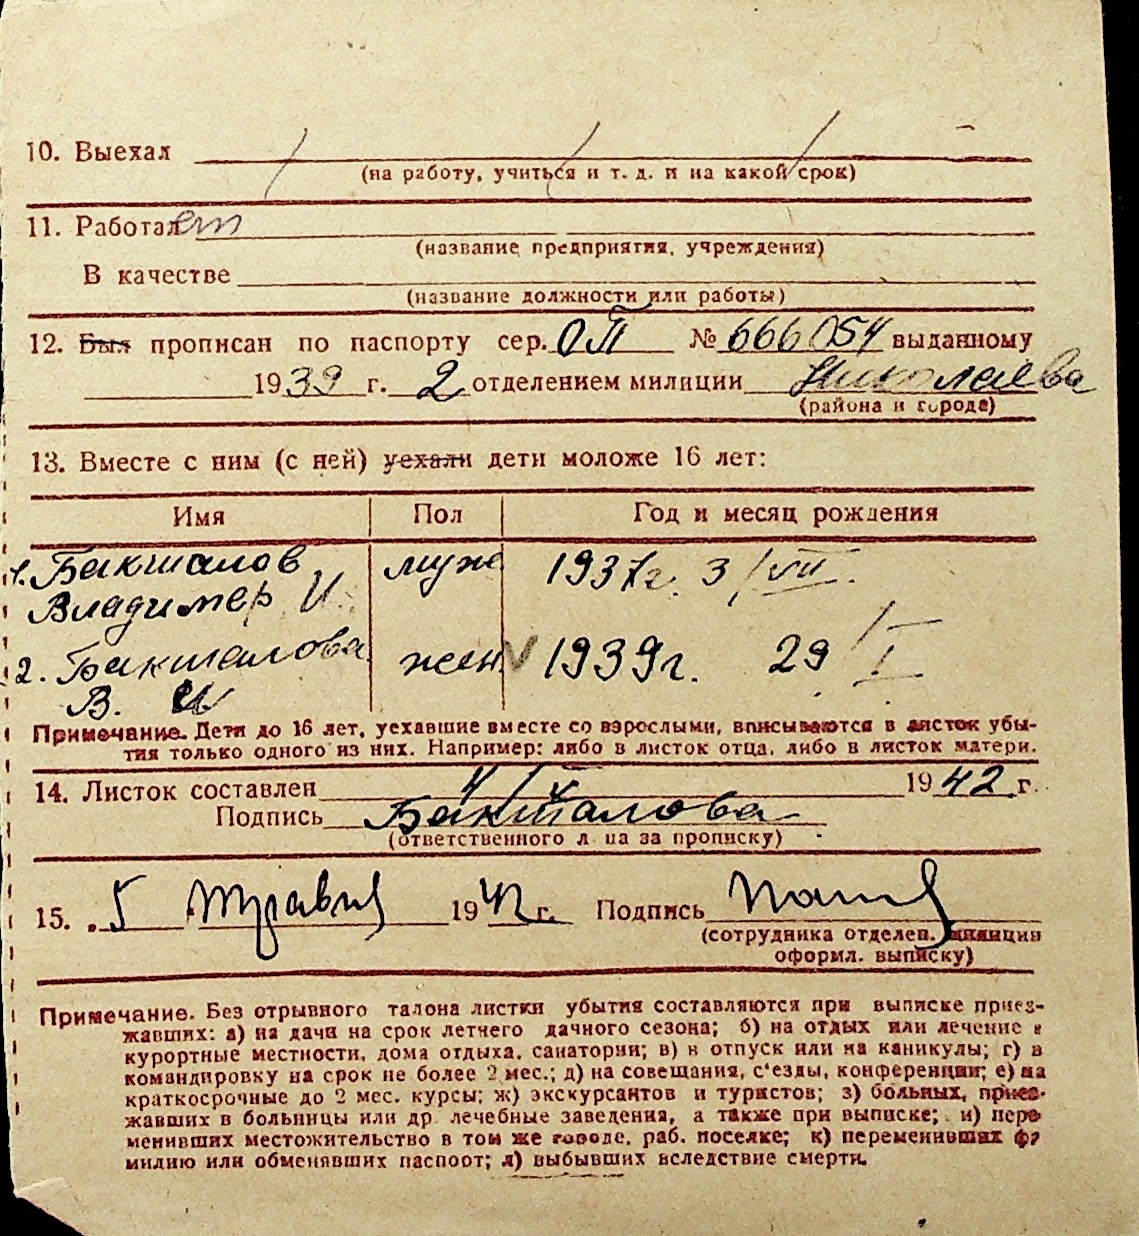 10. Выехал
(на работу, учиться и т. д. и на какой срок)
11. Работает
(название предприятия, учреждения)
В качестве
(название должности или работы)
12. Был прописан по паспорту сер. ОП № 666054 выданному
1939 г. 2 отделением милиции Николаева
(района и города)
13. Вместе с ним (с ней) уехали дети моложе 16 лет:
Имя Пол Год и месяц рождения
1. Бакшалов муж 1937г. 3/VII.
Владимер И.
2. Бакшалова жен. V 1939г. 29/I
В. И
Примечание. Дети до 16 лет, уехавшие вместе со взрослыми, вписываются в листок убы-
тия только одного из них. Например: либо в листок отца, либо в листок матери.
14. Листок составлен 4/V 1942 г.
Подпись Бакшалова
(ответственного лица за прописку)
15. 5 Травня 1942 г. Подпись
(сотрудника отделен. милиции
оформ. выписку)
Примечание. Без отрывного талона листки убытия составляются при выписке приез-
жавших: а) на дачи на срок летнего дачного сезона; б) на отдых или лечение в
курортные местности, дома отдыха, санатории; в) в отпуск или на каникулы; г) в
командировку на срок не более 2 мес.; д) на совещания, с'езды, конференции; е) на
краткосрочные до 2 мес. курсы; ж) экскурсантов и туристов; з) больных, приез-
жавших в больницы или др. лечебные заведения, а также при выписке; и) пере
менивших местожительство в том же городе, раб. поселке; к) переменивших фа
милию или обменявших паспорт; л) выбывших вследствие смерти.